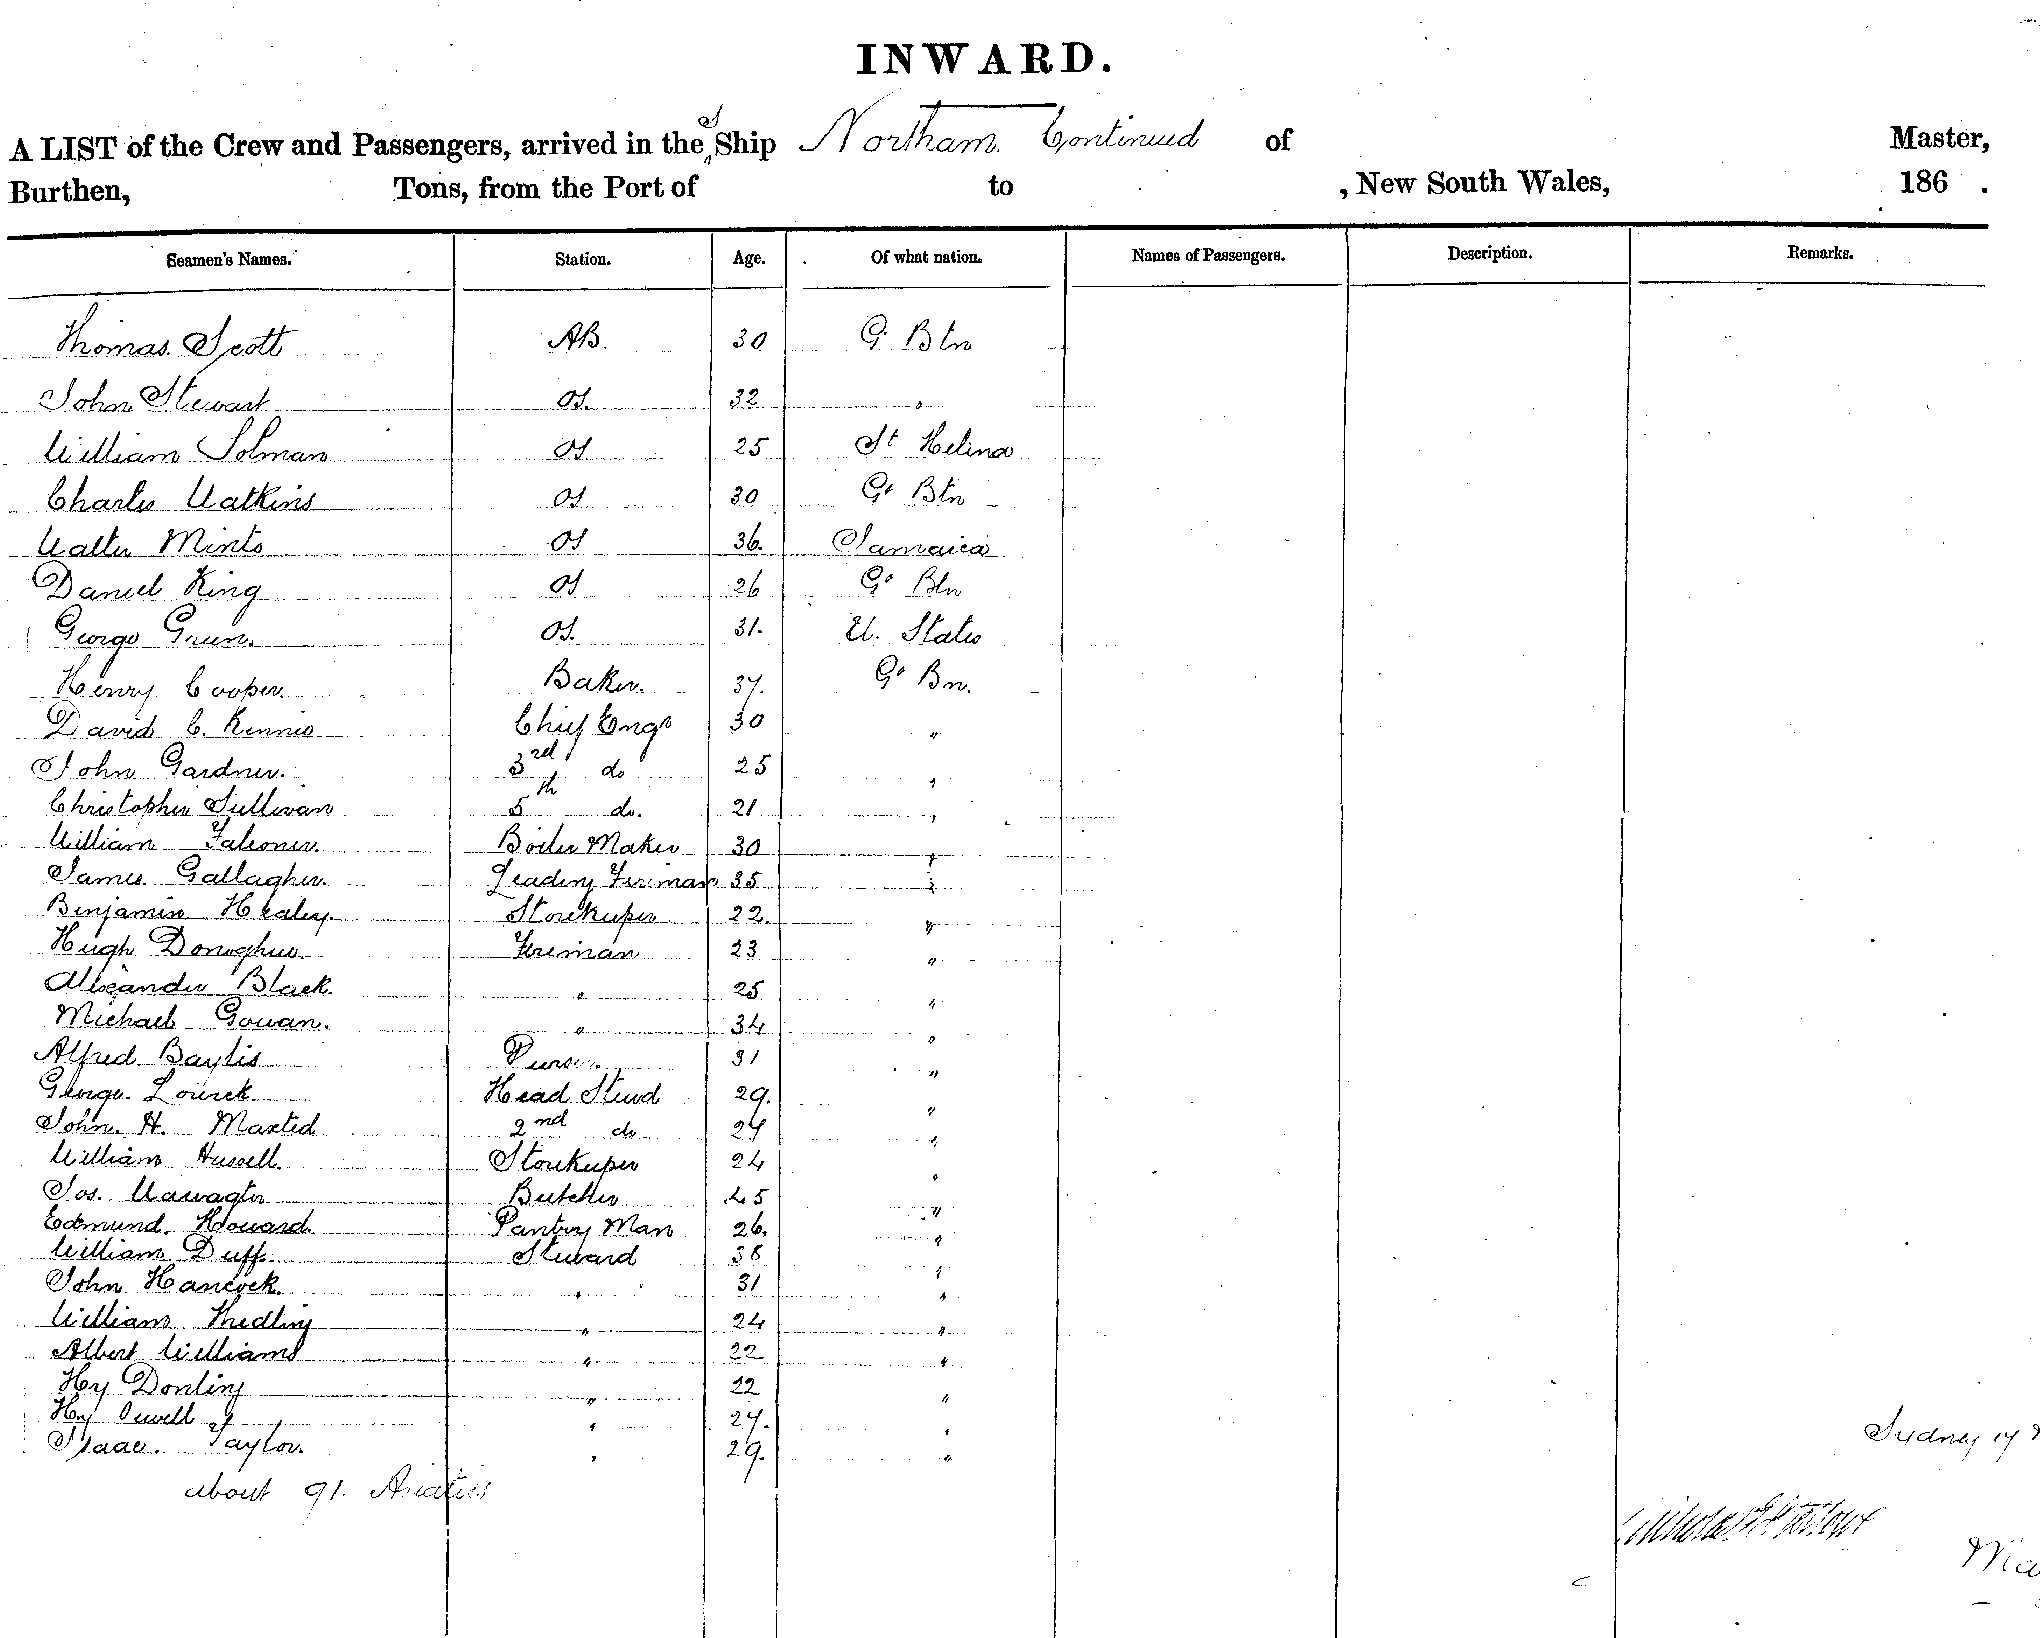 INWARD.
A LIST of the Crew and Passengers, arrived in the S Ship Northam Continued of Master,
Burthen, Tons, from the Port of to , New South Wales, 186 .
Seamen's Names. Station. Age. Of what nation. Names of Passengers. Description. Remarks.
Thomas Scott AB. 30 G. Btn
John Stewart OS. 32 "
William Solman OS 25 St Helina
Charles Watkins OS 30 Gt Btn
Walter Minto OS 36. Jamaica
Daniel King OS 26 Gt Btn
George Green. OS. 31. U. States
Henry Cooper. Baker. 37. Gt Bn.
David C. Rennie Chief Engr 30 "
John Gardner. 3rd do 25 "
Christopher Sullivan 5th do. 21 "
William Falconer. Boiler Maker 30 "
James Gallagher. Leading Fireman 35 "
Benjamin Healey. Storekeeper 22. "
Hugh Donoghue. Fireman 23 "
Alexander Black. " 25 "
Michael Gowan. " 34 "
Alfred Baylis Purser. 31 "
George. Head Stewd 29. "
John. H. Maxted 2nd do 24 "
William Hussell. Storekeeper 24 "
Jos. Butcher 45 "
Edmund. Howard. Pantry Man 26. "
William Duff. Steward 38 "
John Hancock. " 31 "
William " 24 "
Albert Williams " 22 "
Hy Donling " 22 "
Hy " 27. "
Isaac. Taylor. " 29. "
Sydney 17
about 91. Asiatics